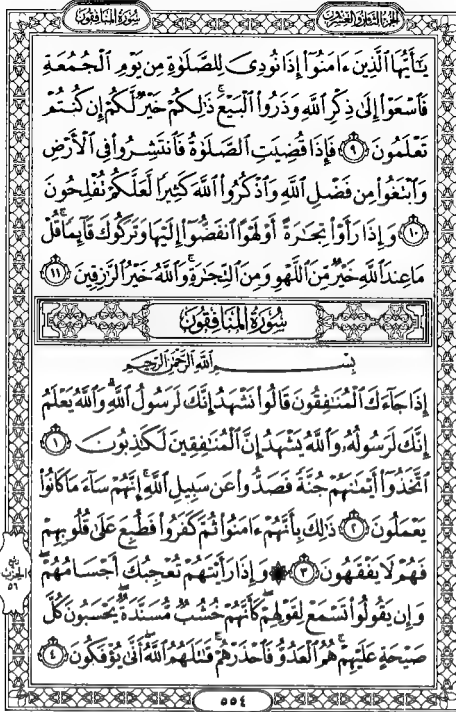 سُورَةُ المُنَافِقُونَ
الجُزْءُ الثَّامِنُ وَالعِشْرُونَ
يَٰٓأَيُّهَا ٱلَّذِينَ ءَامَنُوٓا۟ إِذَا نُودِىَ لِلصَّلَوٰةِ مِن يَوْمِ ٱلْجُمُعَةِ
فَٱسْعَوْا۟ إِلَىٰ ذِكْرِ ٱللَّهِ وَذَرُوا۟ ٱلْبَيْعَ ۚ ذَٰلِكُمْ خَيْرٌ لَّكُمْ إِن كُنتُمْ
تَعْلَمُونَ ٩ فَإِذَا قُضِيَتِ ٱلصَّلَوٰةُ فَٱنتَشِرُوا۟ فِى ٱلْأَرْضِ
وَٱبْتَغُوا۟ مِن فَضْلِ ٱللَّهِ وَٱذْكُرُوا۟ ٱللَّهَ كَثِيرًا لَّعَلَّكُمْ تُفْلِحُونَ
١٠ وَإِذَا رَأَوْا۟ تِجَٰرَةً أَوْ لَهْوًا ٱنفَضُّوٓا۟ إِلَيْهَا وَتَرَكُوكَ قَآئِمًا ۚ قُلْ
مَا عِندَ ٱللَّهِ خَيْرٌ مِّنَ ٱللَّهْوِ وَمِنَ ٱلتِّجَٰرَةِ ۚ وَٱللَّهُ خَيْرُ ٱلرَّٰزِقِينَ ١١
سُورَةُ المُنَافِقُونَ
بِسْمِ ٱللَّهِ ٱلرَّحْمَٰنِ ٱلرَّحِيمِ
إِذَا جَآءَكَ ٱلْمُنَٰفِقُونَ قَالُوا۟ نَشْهَدُ إِنَّكَ لَرَسُولُ ٱللَّهِ ۗ وَٱللَّهُ يَعْلَمُ
إِنَّكَ لَرَسُولُهُۥ وَٱللَّهُ يَشْهَدُ إِنَّ ٱلْمُنَٰفِقِينَ لَكَٰذِبُونَ ١
ٱتَّخَذُوٓا۟ أَيْمَٰنَهُمْ جُنَّةً فَصَدُّوا۟ عَن سَبِيلِ ٱللَّهِ ۚ إِنَّهُمْ سَآءَ مَا كَانُوا۟
يَعْمَلُونَ ٢ ذَٰلِكَ بِأَنَّهُمْ ءَامَنُوا۟ ثُمَّ كَفَرُوا۟ فَطُبِعَ عَلَىٰ قُلُوبِهِمْ
فَهُمْ لَا يَفْقَهُونَ ٣ ۞ وَإِذَا رَأَيْتَهُمْ تُعْجِبُكَ أَجْسَامُهُمْ ۖ
وَإِن يَقُولُوا۟ تَسْمَعْ لِقَوْلِهِمْ ۖ كَأَنَّهُمْ خُشُبٌ مُّسَنَّدَةٌ ۖ يَحْسَبُونَ كُلَّ
صَيْحَةٍ عَلَيْهِمْ ۚ هُمُ ٱلْعَدُوُّ فَٱحْذَرْهُمْ ۚ قَٰتَلَهُمُ ٱللَّهُ ۖ أَنَّىٰ يُؤْفَكُونَ ٤
رُبْع
الحِزْب
٥٦
٥٥٤